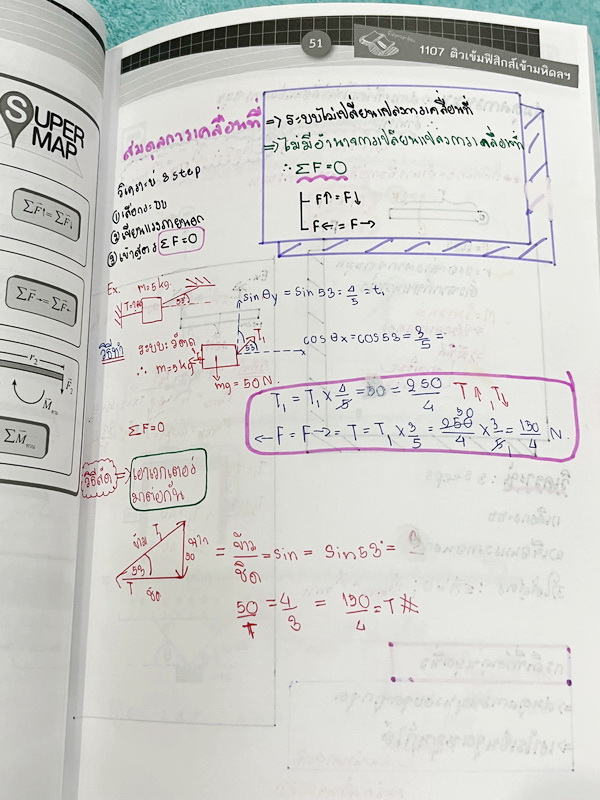 51
1107 ติวเข้มฟิสิกส์เข้ามหิดลฯ
SUPER
MAP
สมดุลการเคลื่อนที่
⇒ ระบบไม่เปลี่ยนแปลงการเคลื่อนที่
⇒ ไม่มีอำนาจการเปลี่ยนแปลงการเคลื่อนที่
∴ ΣF=0
F↑ = F↓
F← = F→
วิเคราะห์ 3 step
① เลือกระบบ
② เขียนแรงภายนอก
③ เข้าสูตร ΣF=0
ΣF↑ = ΣF↓
ΣF→ = ΣF←
r₂
F₂
ΣM
Ex. m=5 kg
sin θy = sin 53 = 4/5 = t₁
วิธีทำ
ระบบ: วัตถุ
∴ m=5 kg
T₁
53
mg = 50 N.
cos θx = cos 53 = 3/5 =
T₁ = T₁ × 4/5 = 50 = 250/4 T↑, T↓
← F = F→ = T = T₁ × 3/5 = 250/4 × 3/5 = 150/4 N.
50
ΣF=0
วิธีลัด ⇒ เอาเวกเตอร์
มาต่อกัน
ข้าม T₁
53
50
T ชิด
= ข้าม/ชิด = sin = sin 53° =
50/T = 4/3 = 150/4 = T #